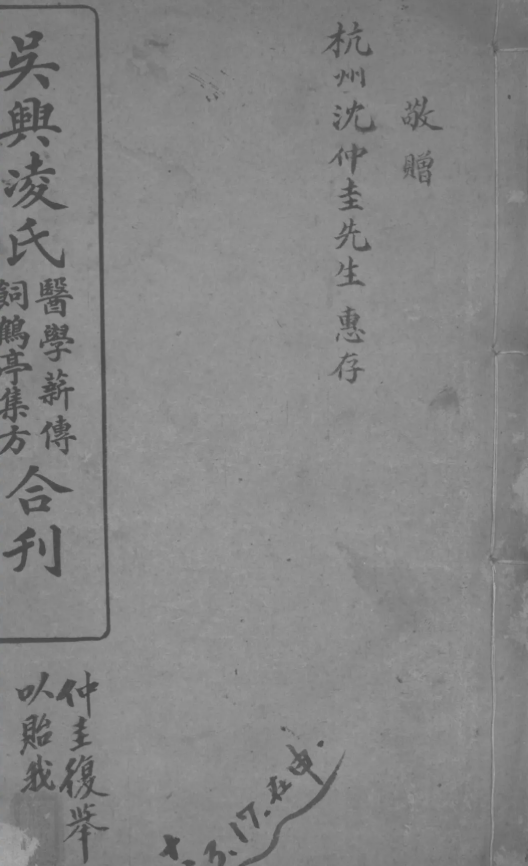 敬贈
杭州沈仲圭先生 惠存
吳興凌氏
醫學薪傳
飼鶴亭集方
合刊
仲圭復舉
以貽我
3.17.在申.